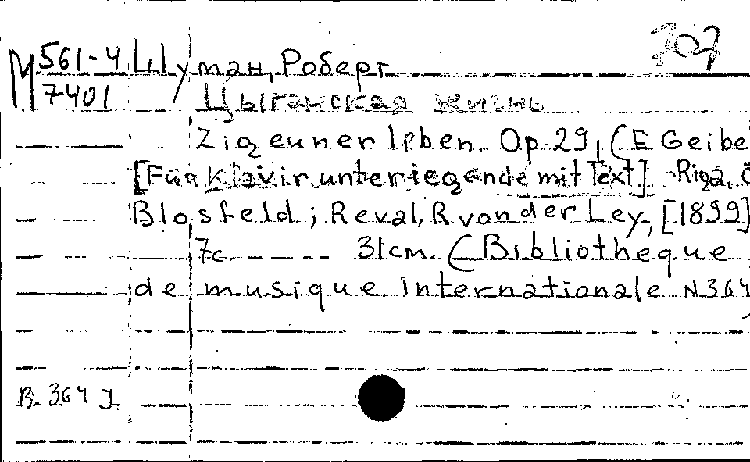 М 561-4 Шуман, Роберт 707
7401 Цыганская жизнь
Zigeunerleben. Op. 29, (E Geibe
[Für Klavir unterlegende mit Text] Riga,
Blosfeld; Reval, R von der Ley, [1899]
7c 31cm. (Bibliotheque
de musique internationale N364
B. 364 J